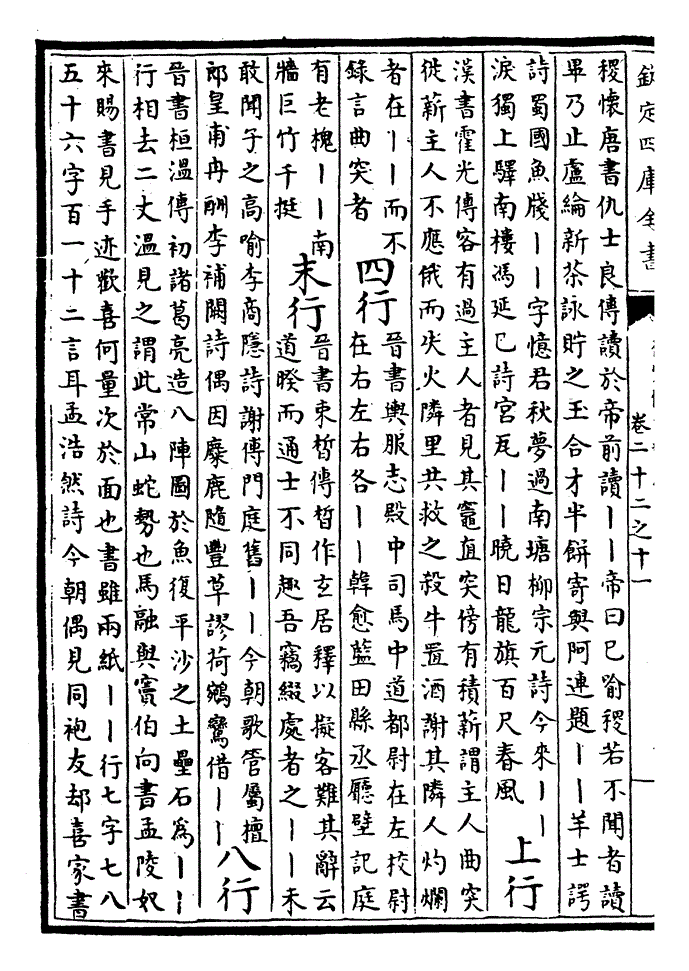 欽定四庫全書
卷二十二之十一
稷懷唐書仇士良傳讀於帝前讀丨丨帝曰已喻稷若不聞者讀
畢乃止盧綸新茶詠貯之玉合才半餅寄與阿連題丨丨羊士諤
詩蜀國魚牋丨丨字憶君秋夢過南塘柳宗元詩今來丨丨
淚獨上驛南樓馮延巳詩宮瓦丨丨曉日龍旗百尺春風
上行
漢書霍光傳客有過主人者見其竈直突傍有積薪謂主人曲突
徙薪主人不應俄而失火隣里共救之殺牛置酒謝其隣人灼爛
者在丨丨而不
錄言曲突者
四行
晉書輿服志殿中司馬中道都尉在左校尉
在右左右各丨丨韓愈藍田縣丞廳壁記庭
有老槐丨丨南
牆巨竹千挺
末行
晉書束皙傳皙作玄居釋以擬客難其辭云
道暌而通士不同趣吾竊綴處者之丨丨未
敢聞子之高喻李商隱詩謝傅門庭舊丨丨今朝歌管屬檀
郎皇甫冉酬李補闕詩偶因麋鹿隨豐草謬荷鵷鸞借丨丨
八行
晉書桓溫傳初諸葛亮造八陣圖於魚復平沙之上壘石為丨丨
行相去二丈溫見之謂此常山蛇勢也馬融與竇伯向書孟陵奴
來賜書見手迹歡喜何量次於面也書雖兩紙丨丨行七字七八
五十六字百一十二言耳孟浩然詩今朝偶見同袍友却喜家書